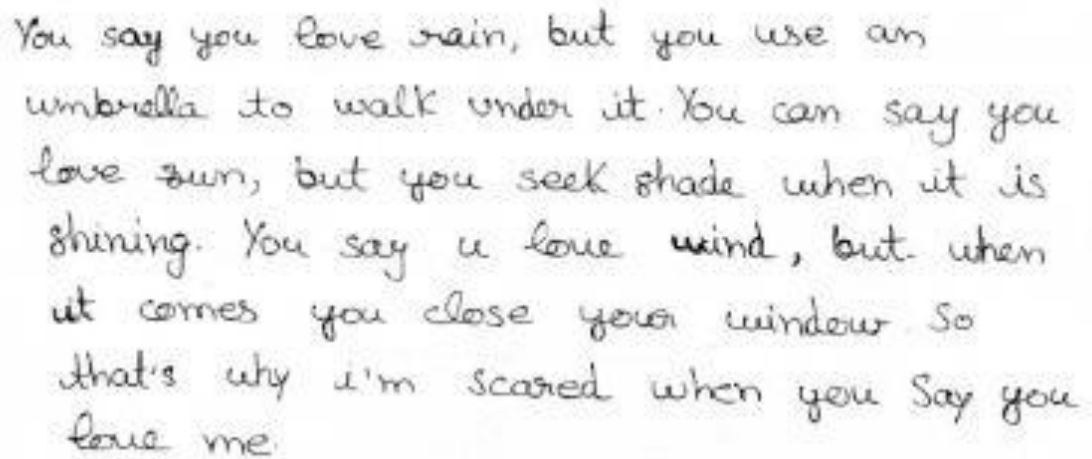 You say you love rain, but you use an
umbrella to walk under it. You can say you
love sun, but you seek shade when it is
shining. You say u love wind, but when
it comes you close your window. So
that's why i'm scared when you Say you
love me.